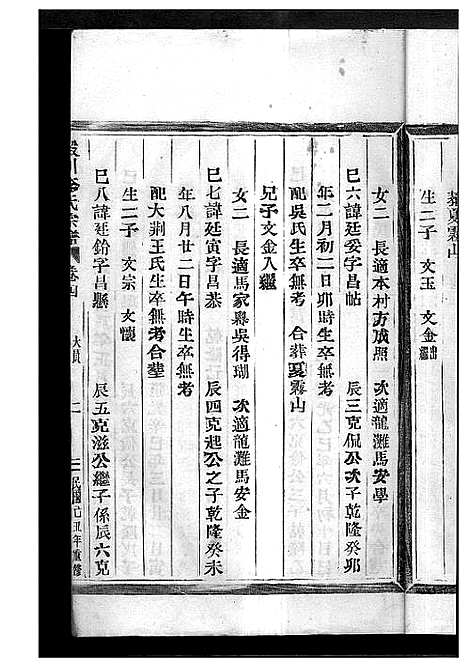 葬夏霧山
生二子 文玉 文金出繼
女二 長適本村方成照 次適龍灘馬安學
巳六諱廷委字昌帖 辰三克侃公次子乾隆癸卯
年二月初二日卯時生卒無考
配吳氏生卒無考 合葬夏霧山
兄子文金入繼
女二 長適馬家縣吳得瑚 次適龍灘馬安金
巳七諱廷寅字昌恭 辰四克起公之子乾隆癸未
年八月廿二日午時生卒無考
配大荆王氏生卒無考合葬
生二子 文宗 文懷
巳八諱廷鈖字昌懸 辰五克滋公繼子係辰六克
川 氏宗譜 卷四 二 民國乙丑年重修